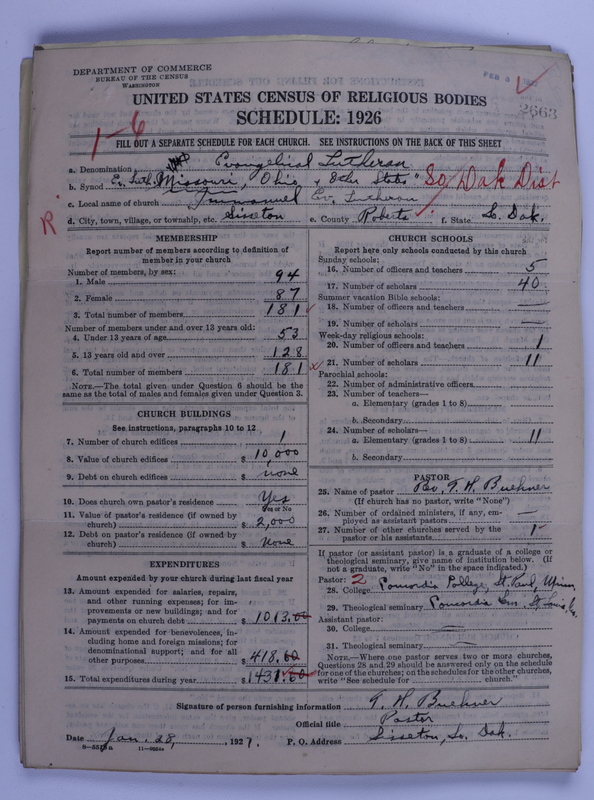 DEPARTMENT OF COMMERCE
BUREAU OF THE CENSUS
WASHINGTON
FEB 8
2663
UNITED STATES CENSUS OF RELIGIOUS BODIES
SCHEDULE: 1926
1-6
FILL OUT A SEPARATE SCHEDULE FOR EACH CHURCH. SEE INSTRUCTIONS ON THE BACK OF THIS SHEET
a. Denomination Evangelical Lutheran
b. Synod Ev. Luth. Missouri, Ohio & other States" So Dak Dist
c. Local name of church Immanuel Ev. Lutheran
R
d. City, town, village, or township, etc. Sisseton e. County Roberts f. State So. Dak.
MEMBERSHIP
Report number of members according to definition of member in your church
Number of members, by sex:
1. Male 94
2. Female 87
3. Total number of members 181
Number of members under and over 13 years old:
4. Under 13 years of age 53
5. 13 years old and over 128
6. Total number of members 181
NOTE.—The total given under Question 6 should be the
same as the total of males and females given under Question 3.
CHURCH BUILDINGS
See instructions, paragraphs 10 to 12
7. Number of church edifices 1
8. Value of church edifices $ 10,000
9. Debt on church edifices $ none
10. Does church own pastor's residence Yes
Yes or No
11. Value of pastor's residence (if owned by
church) $ 2,000
12. Debt on pastor's residence (if owned by
church) $ None
EXPENDITURES
Amount expended by your church during last fiscal year
13. Amount expended for salaries, repairs,
and other running expenses; for im-
provements or new buildings; and for
payments on church debt $ 1013.00
14. Amount expended for benevolences, in-
cluding home and foreign missions; for
denominational support; and for all
other purposes $ 418.60
15. Total expenditures during year $ 1431.60
CHURCH SCHOOLS
Report here only schools conducted by this church
Sunday schools:
16. Number of officers and teachers 5
17. Number of scholars 40
Summer vacation Bible schools:
18. Number of officers and teachers —
19. Number of scholars —
Week-day religious schools:
20. Number of officers and teachers 1
21. Number of scholars 11
Parochial schools:
22. Number of administrative officers
23. Number of teachers—
a. Elementary (grades 1 to 8)
b. Secondary
24. Number of scholars—
a. Elementary (grades 1 to 8) 11
b. Secondary
PASTOR
25. Name of pastor Rev. T. H. Buehner
(If church has no pastor, write "None")
26. Number of ordained ministers, if any, em-
ployed as assistant pastors —
27. Number of other churches served by the
pastor or his assistants 1
If pastor (or assistant pastor) is a graduate of a college or
theological seminary, give name of institution below. (If
not a graduate, write "No" in the space indicated.)
Pastor: 2
28. College Concordia College, St. Paul, Minn
29. Theological seminary Concordia Sem., St. Louis,
Assistant pastor:
30. College —
31. Theological seminary —
NOTE.—Where one pastor serves two or more churches,
Questions 28 and 29 should be answered only on the schedule
for one of the churches; on the schedules for the other churches,
write "See schedule for church."
Signature of person furnishing information T. H. Buehner
Official title Pastor
Date Jan. 28, , 1927. P. O. Address Sisseton, So. Dak.